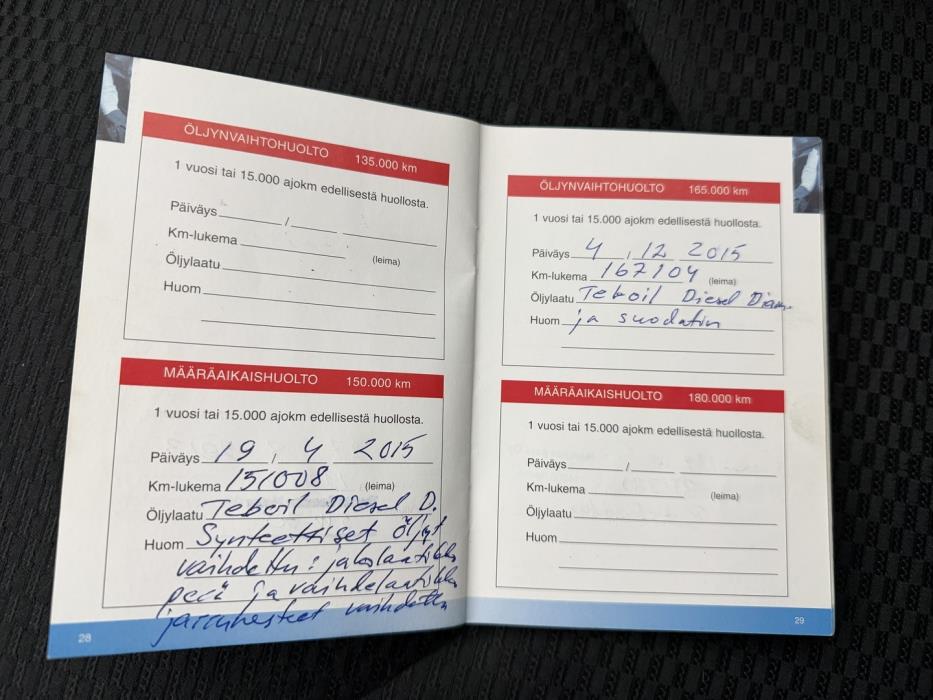 ÖLJYNVAIHTOHUOLTO 135.000 km
1 vuosi tai 15.000 ajokm edellisestä huollosta.
Päiväys / 
Km-lukema (leima)
Öljylaatu
Huom
MÄÄRÄAIKAISHUOLTO 150.000 km
1 vuosi tai 15.000 ajokm edellisestä huollosta.
Päiväys 19 / 4 2015
Km-lukema 151008 (leima)
Öljylaatu Teboil Diesel D.
Huom Synteettiset öljyt
vaihdettu: jakolaatikko
perä ja vaihdelaatikko
jarrunesteet vaihdettu
28
ÖLJYNVAIHTOHUOLTO 165.000 km
1 vuosi tai 15.000 ajokm edellisestä huollosta.
Päiväys 4 / 12 2015
Km-lukema 167104 (leima)
Öljylaatu Teboil Diesel
Huom ja suodatin
MÄÄRÄAIKAISHUOLTO 180.000 km
1 vuosi tai 15.000 ajokm edellisestä huollosta.
Päiväys /
Km-lukema (leima)
Öljylaatu
Huom
29